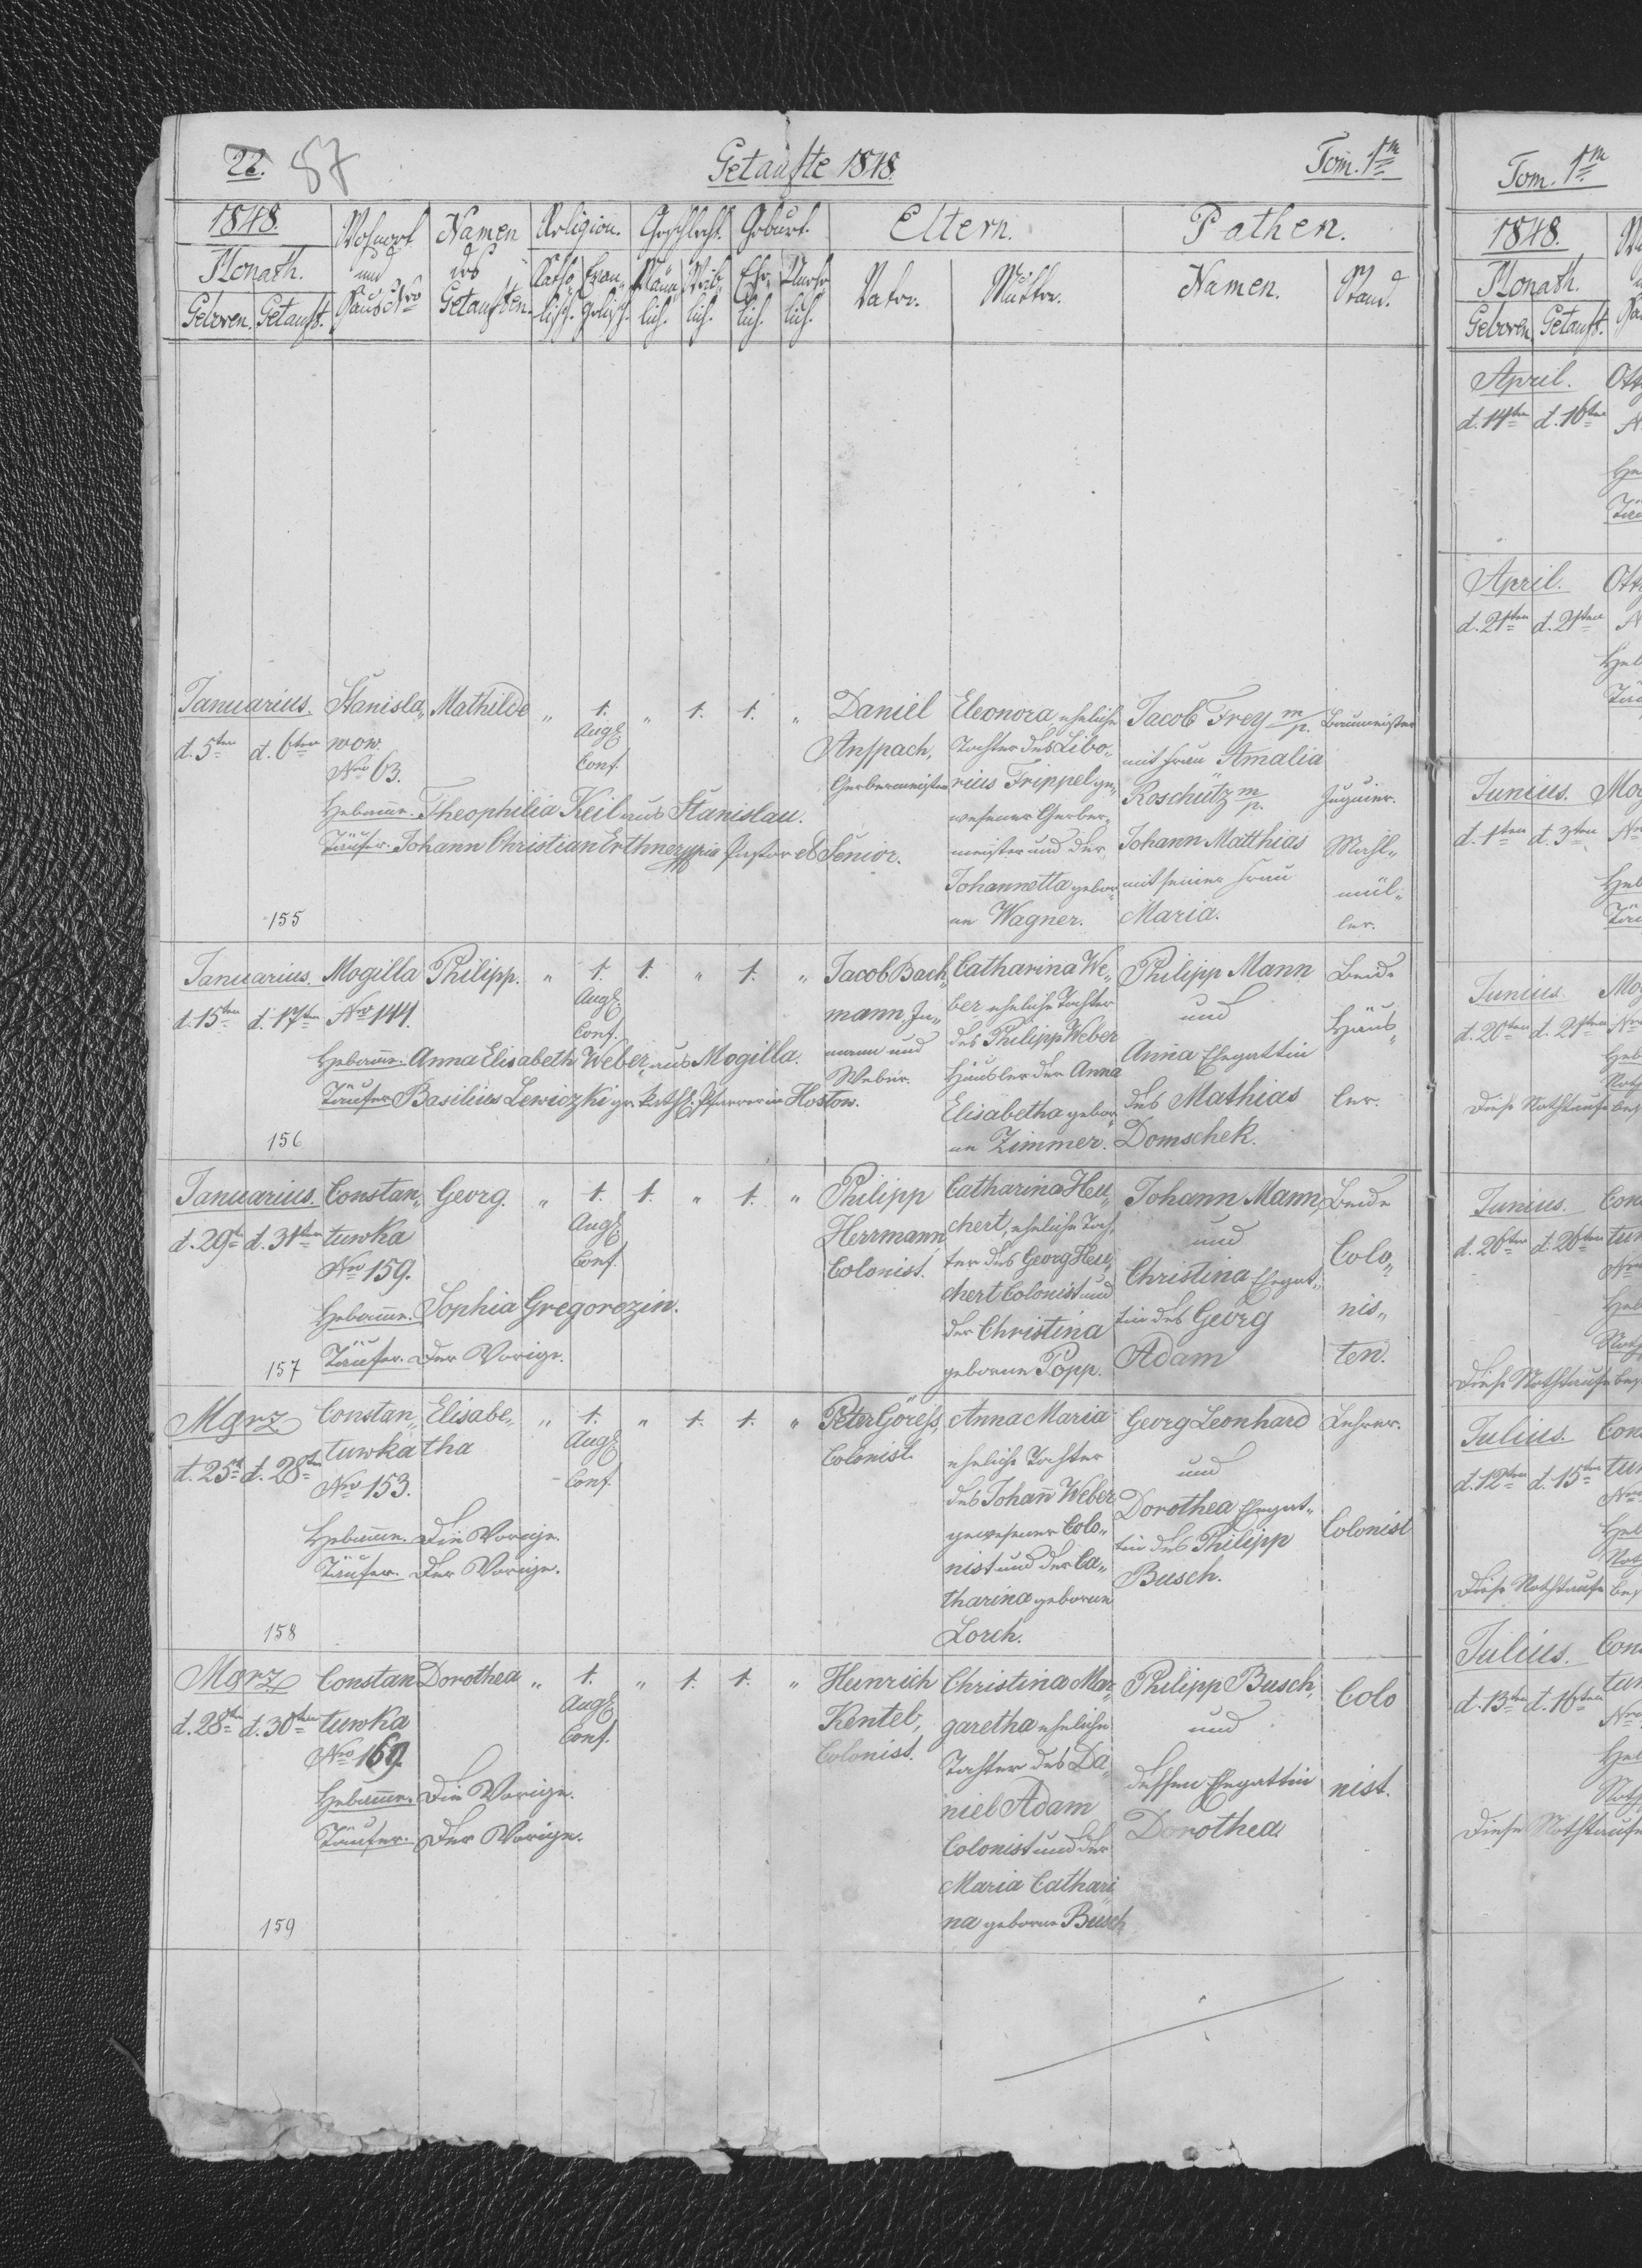 22. 57
Getaufte 1848.
Tom. 1m
1848.
Monath.
Geboren. Getauft.
Wohnort
und
Haus Nro
Namen
des
Getauften.
Religion.
Katho-
lisch.
Evan-
gelisch.
Geschlecht.
Männ-
lich.
Weib-
lich.
Geburt.
Ehe-
lich.
Uneh-
lich.
Eltern.
Vater.
Mutter.
Pathen.
Namen.
Stand.
Januarius.
d. 5ten d. 6ten
Stanisla„
wow.
Nro 63.
Mathilde
„ 1. „ 1. 1. „
Augs.
Conf.
Daniel
Anspach,
Gerbermeister
Eleonora, eheliche
Tochter des Libo„
rius Trippel ge„
wesener Gerber„
meister und der
Johannetta gebor„
ne Wagner.
Jacob Frey m/p.
mit Frau Amalia
Roschütz m/p.
Johann Matthias
mit seiner Frau
Maria.
Baumeister
Mahl„
mül„
ler.
Hebamme. Theophilia Keil aus Stanislau.
Täufer. Johann Christian
Pastor et Senior.
155
Januarius.
d. 15ten d. 17ten
Mogilla
Nro 144.
Philipp.
„ 1. 1. „ 1. „
Augs.
Conf.
Jacob Bach„
mann, In„
mann und
Weber.
Catharina We„
ber eheliche Tochter
des Philipp Weber
Häusler der Anna
Elisabetha gebor„
ne Zimmer.
Philipp Mann
und
Anna Ehegattin
des Mathias
Domschek.
Beide
Häus„
ler.
Hebamme. Anna Elisabeth Weber, aus Mogilla.
Täufer Basilius Lewiczki gr. kathl. Pfarrer in Hostow.
156
Januarius.
d. 29t d. 31ten
Constan„
tuwka
Nro 159.
Georg.
„ 1. 1. „ 1. „
Augs.
Conf.
Philipp
Herrmann
Colonist.
Catharina Heu„
chert, eheliche Toch„
ter des Georg Heu„
chert Colonist und
der Christina
geborne Popp.
Johann Mann,
und
Christina Ehegat„
tin des Georg
Adam
Beide
Colo„
nis„
ten.
Hebamme. Sophia Gregorozin.
Täufer. Der Vorige.
157
März
d. 25t d. 28ten
Constan„
tuwka
Nro 153.
Elisabe„
tha
„ 1. „ 1. 1. „
Augs.
Conf.
Peter Göress,
Colonist.
Anna Maria
eheliche Tochter
des Johann Weber
gewesener Colo„
nist und der Ca„
tharina geborne
Lorch.
Georg Leonhard
und
Dorothea Ehegat„
tin des Philipp
Busch.
Lehrer.
Colonist
Hebamme. Die Vorige.
Täufer. Der Vorige.
158
März
d. 28ten d. 30ten
Constan
tuwka
Nro 169.
Dorothea
„ 1. „ 1. 1. „
Augs.
Conf.
Heinrich
Kentel,
Colonist.
Christina Mar„
garetha eheliche
Tochter des Da„
niel Adam
Colonist und der
Maria Cathari
na geborne Busch
Philipp Busch,
und
dessen Ehegattin
Dorothea
Colo
nist.
Hebamme. Die Vorige.
Täufer. Der Vorige.
159
Tom. 1m
1848.
Monath.
Geboren. Getauft.
April.
d. 14ten d. 16ten
April.
d. 21ten d. 21ten
Junius.
d. 1ten d. 3ten
Junius.
d. 20ten d. 21ten
Diese Nothtaufe
Junius.
d. 26ten d. 26ten
Diese Nothtaufe
Julius.
d. 12ten d. 15ten
Diese Nothtaufe
Julius.
d. 13ten d. 16ten
Diese Nothtaufe